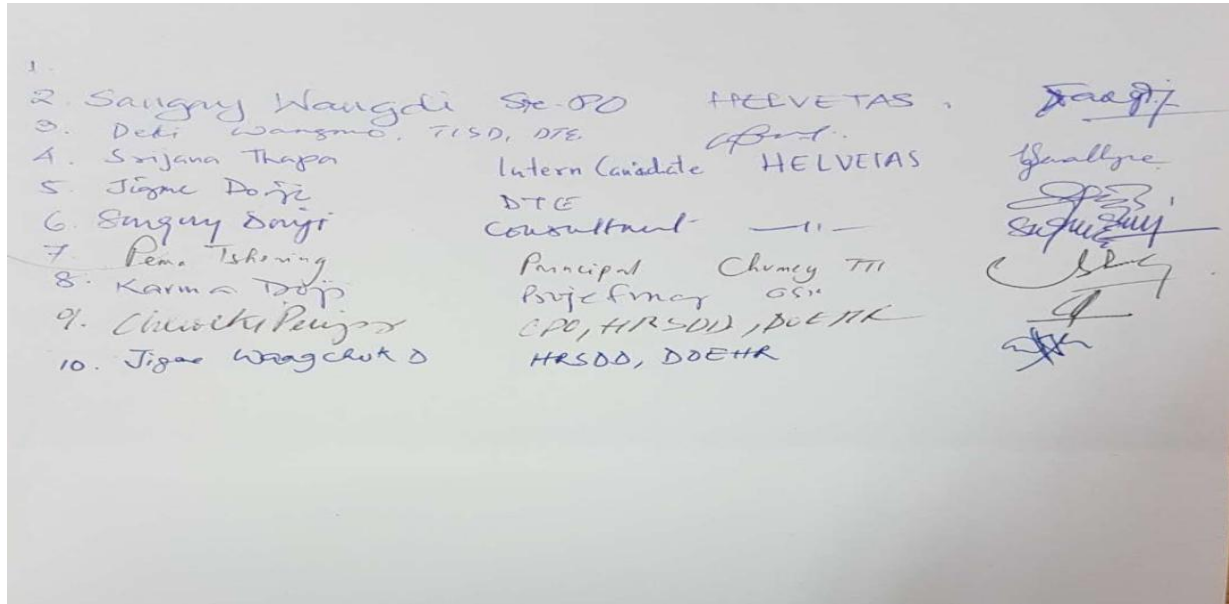 1.
2. Sangay Wangdi Sr. PO HELVETAS.
3. Deki Wangmo, TISD, DTE
4. Srijana Thapa Intern Canidate HELVETAS
5. Jigme Dorji DTE
6. Sangay Dorji Consultant —11—
7. Pema Tshering Principal Chumey TTI
8. Karma Dorji
9. CPO, HRSDD, DOEHR
10. Jigme Wangchuk D HRSDD, DOEHR